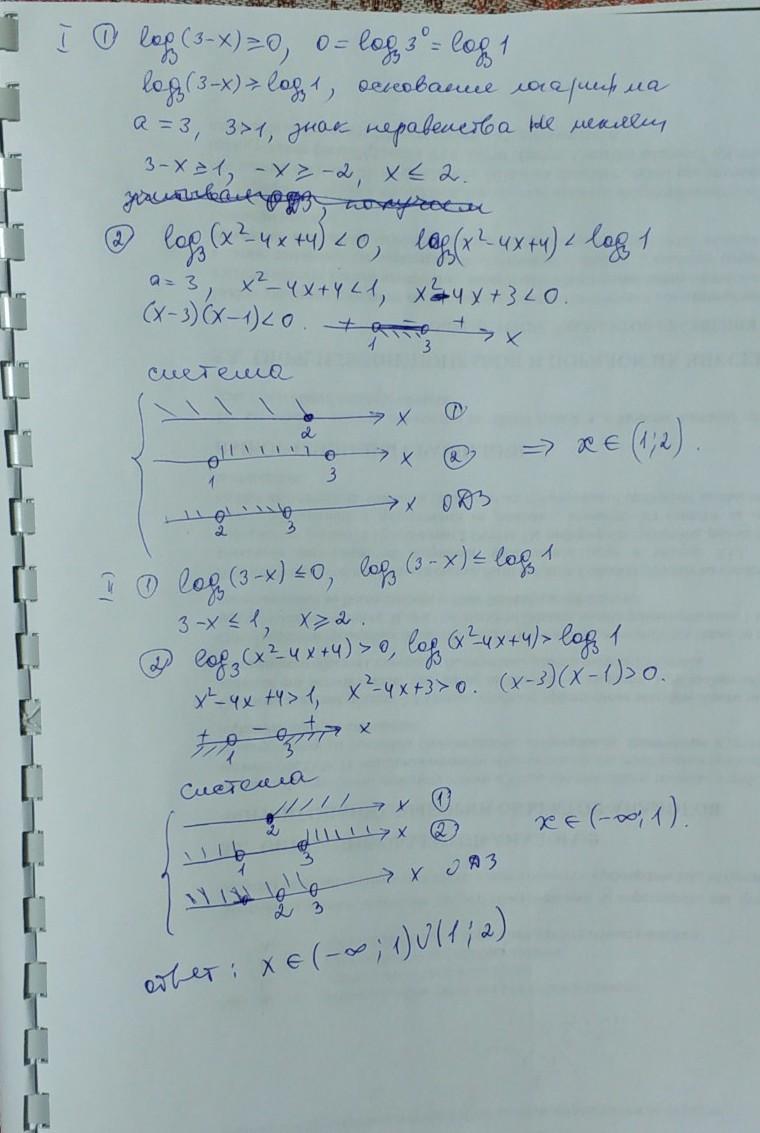 I ① log₃(3-x)≥0, 0=log₃3⁰=log₃1
log₃(3-x)≥log₃1, основание логарифма
a=3, 3>1, знак неравенства не меняем
3-x≥1, -x≥-2, x≤2.
учитывая ОДЗ, получаем
② log₃(x²-4x+4)<0, log₃(x²-4x+4)<log₃1
a=3, x²-4x+4<1, x²-4x+3<0.
(x-3)(x-1)<0. + - + 1 3 x
система
2 x ①
1 3 x ② ⇒ x∈(1;2).
2 3 x ОДЗ
II ① log₃(3-x)≤0, log₃(3-x)≤log₃1
3-x≤1, x≥2.
② log₃(x²-4x+4)>0, log₃(x²-4x+4)>log₃1
x²-4x+4>1, x²-4x+3>0. (x-3)(x-1)>0.
+ - + 1 3 x
система
2 x ①
1 3 x ② x∈(-∞;1).
2 3 x ОДЗ
ответ: x∈(-∞;1)∪(1;2)